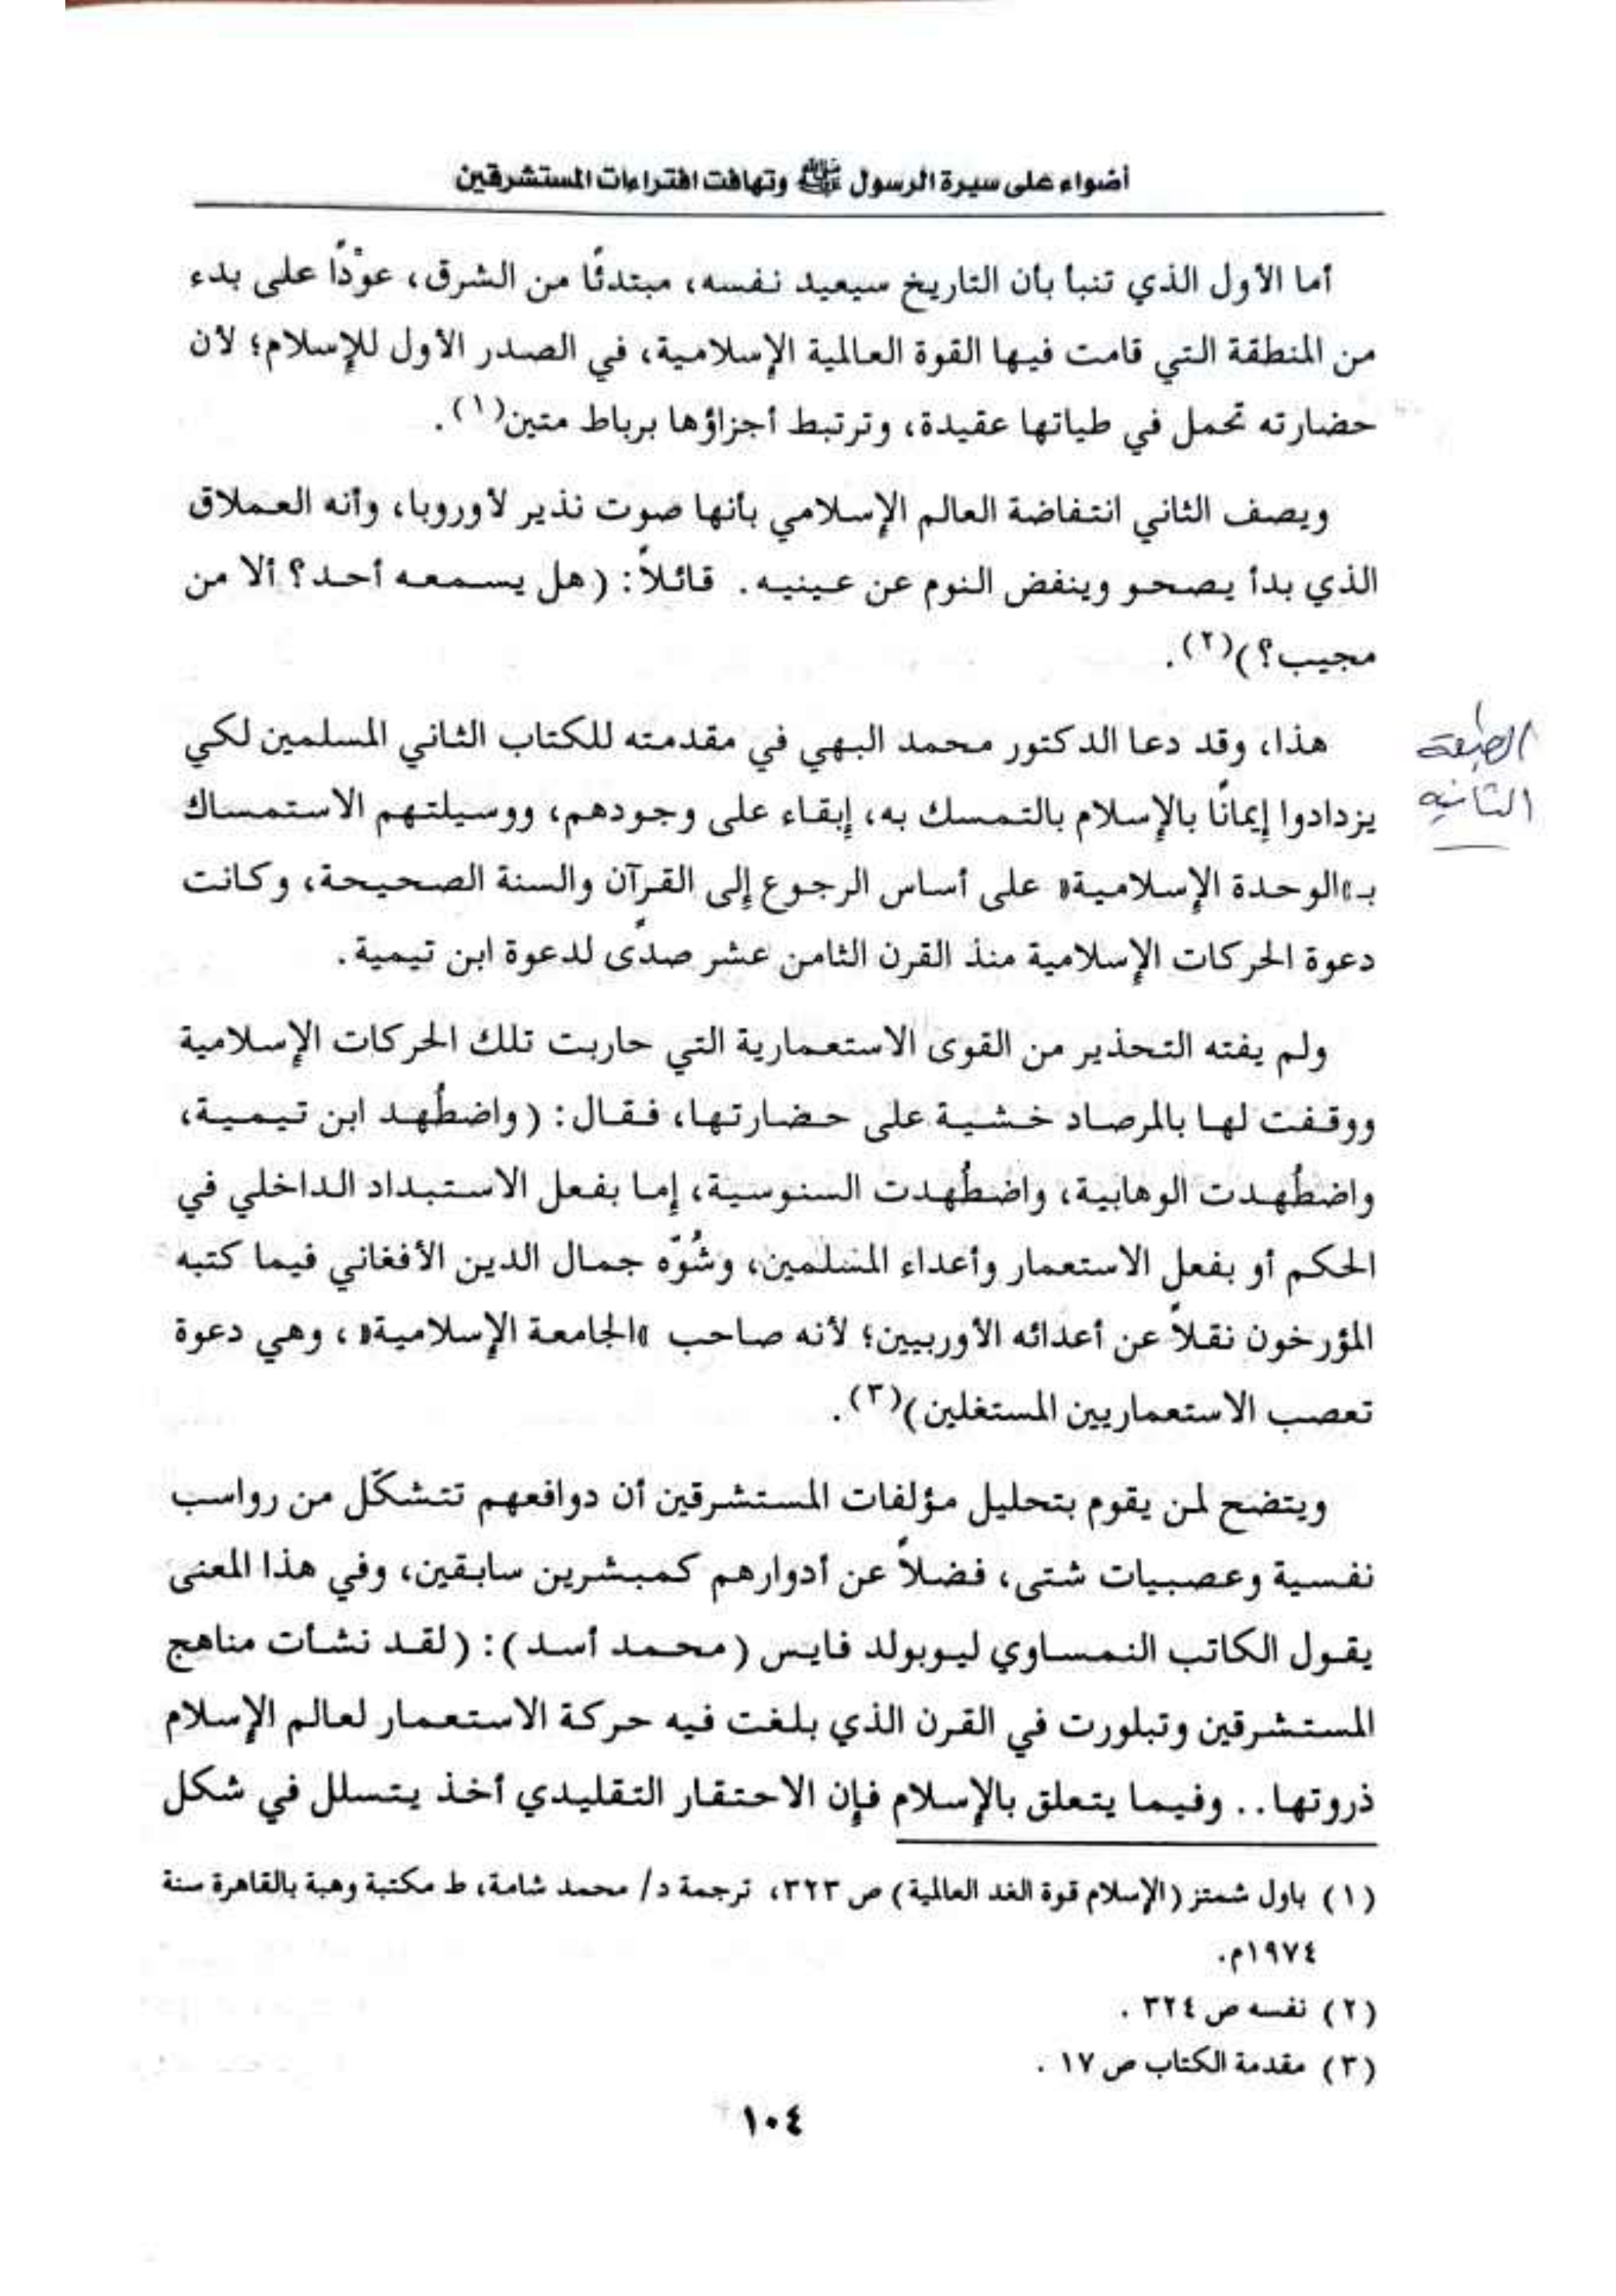 أضواء على سيرة الرسول ﷺ وتهافت افتراءات المستشرقين
أما الأول الذي تنبأ بأن التاريخ سيعيد نفسه، مبتدئًا من الشرق، عوْدًا على بدء
من المنطقة التي قامت فيها القوة العالمية الإسلامية، في الصدر الأول للإسلام؛ لأن
حضارته تحمل في طياتها عقيدة، وترتبط أجزاؤها برباط متين(١).
ويصف الثاني انتفاضة العالم الإسلامي بأنها صوت نذير لأوروبا، وأنه العملاق
الذي بدأ يصحو وينفض النوم عن عينيه. قائلاً: (هل يسمعه أحد؟ ألا من
مجيب؟)(٢).
هذا، وقد دعا الدكتور محمد البهي في مقدمته للكتاب الثاني المسلمين لكي
الطبعة
يزدادوا إيمانًا بالإسلام بالتمسك به، إبقاء على وجودهم، ووسيلتهم الاستمساك
الثانية
بـ«الوحدة الإسلامية» على أساس الرجوع إلى القرآن والسنة الصحيحة، وكانت
دعوة الحركات الإسلامية منذ القرن الثامن عشر صدًى لدعوة ابن تيمية.
ولم يفته التحذير من القوى الاستعمارية التي حاربت تلك الحركات الإسلامية
ووقفت لها بالمرصاد خشية على حضارتها، فقال: (واضطُهد ابن تيمية،
واضطُهدت الوهابية، واضطُهدت السنوسية، إما بفعل الاستبداد الداخلي في
الحكم أو بفعل الاستعمار وأعداء المسلمين، وشُوّه جمال الدين الأفغاني فيما كتبه
المؤرخون نقلاً عن أعدائه الأوربيين؛ لأنه صاحب «الجامعة الإسلامية»، وهي دعوة
تعصب الاستعماريين المستغلين)(٣).
ويتضح لمن يقوم بتحليل مؤلفات المستشرقين أن دوافعهم تتشكّل من رواسب
نفسية وعصبيات شتى، فضلاً عن أدوارهم كمبشرين سابقين، وفي هذا المعنى
يقول الكاتب النمساوي ليوبولد فايس (محمد أسد): (لقد نشأت مناهج
المستشرقين وتبلورت في القرن الذي بلغت فيه حركة الاستعمار لعالم الإسلام
ذروتها.. وفيما يتعلق بالإسلام فإن الاحتقار التقليدي أخذ يتسلل في شكل
(١) باول شمتز (الإسلام قوة الغد العالمية) ص ٣٢٣، ترجمة د/ محمد شامة، ط مكتبة وهبة بالقاهرة سنة
١٩٧٤م.
(٢) نفسه ص ٣٢٤ .
(٣) مقدمة الكتاب ص ١٧ .
١٠٤